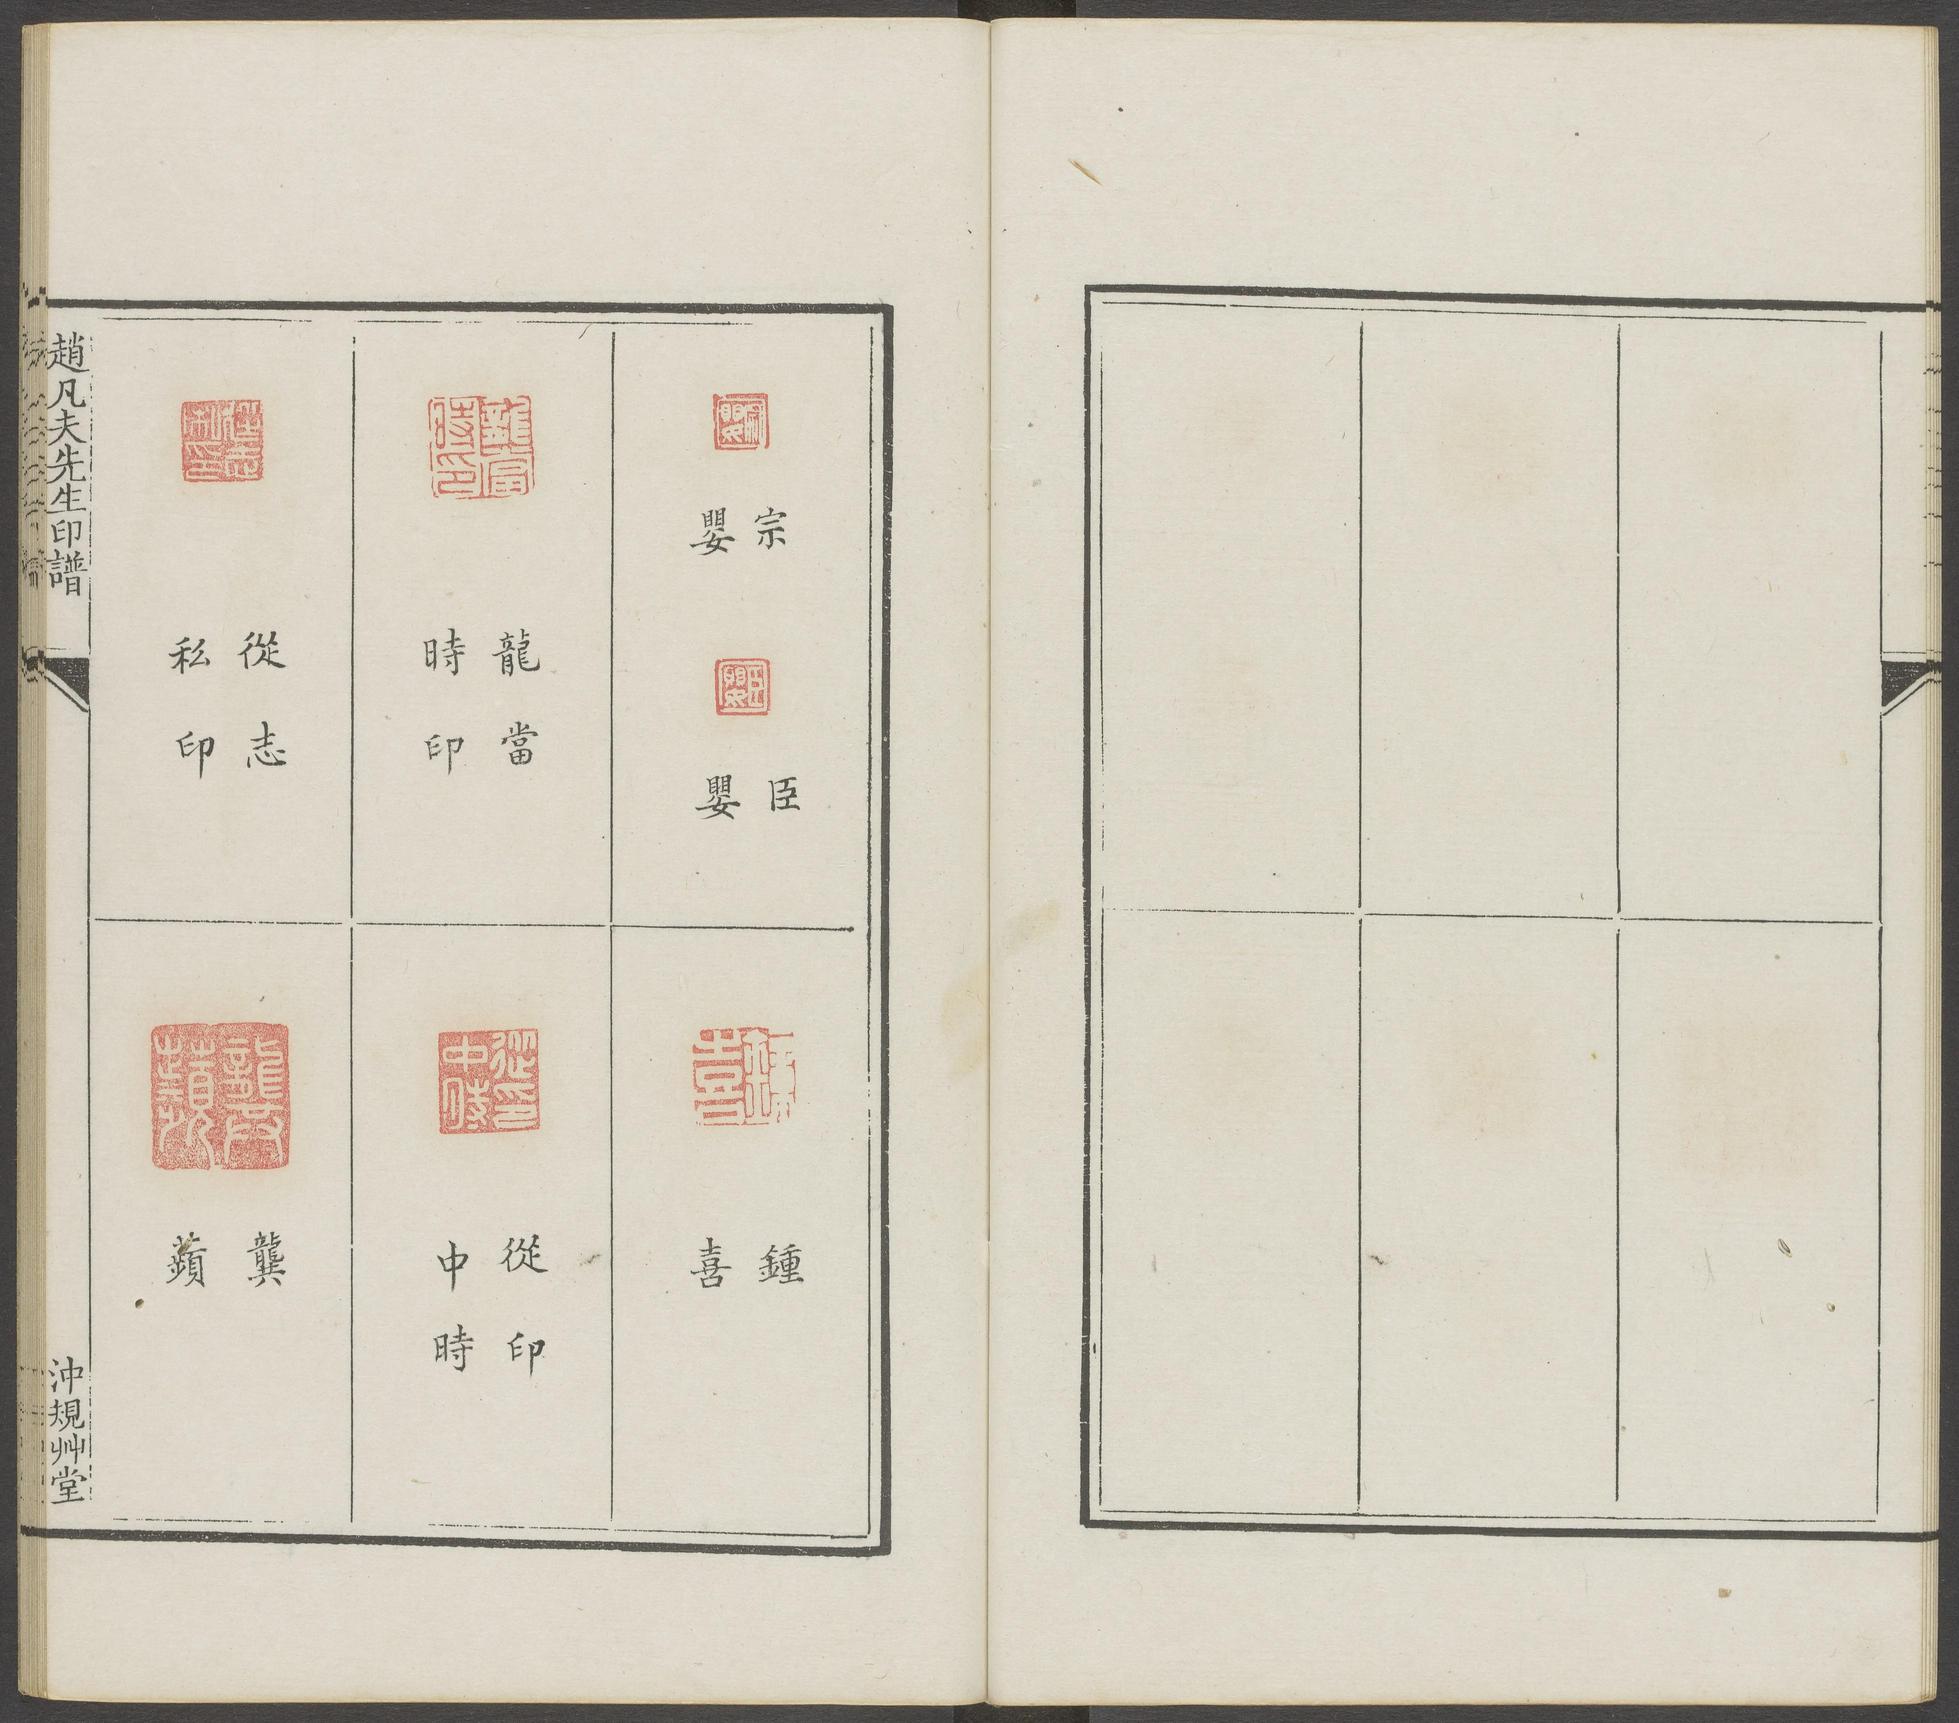 宗
嬰
臣
嬰
鍾
喜
龍當
時印
從印
中時
從志
私印
龔
蘋
趙凡夫先生印譜
沖規艸堂